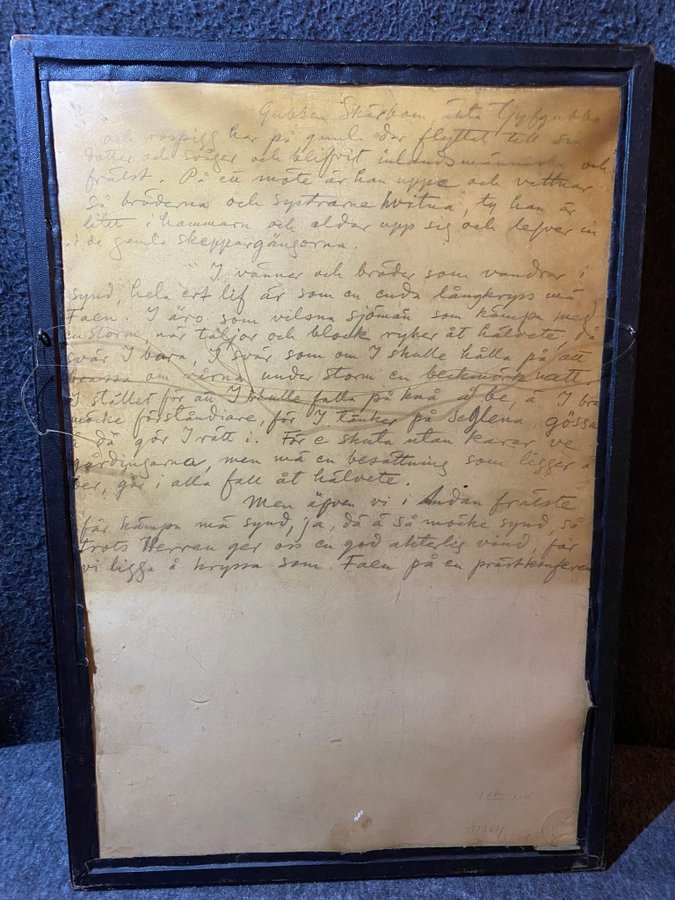 Gubben Skärbom, äkta Tjyfgubbe
och rospigg har på gamla dar flyttat till sin
dotter och svåger och blifvit inlandsmänniska och
frälst. På ett möte är han uppe och vittnar
så bröderna och systrarne hvitna, ty han är
litet i hammarn och eldar upp sig och lefver in
i de gamla skeppargängorna.
"I vänner och bröder som vandrar i
synd, hela ert lif är som en enda långkryss må
Faen. I äro som vilsna sjömän som kämpa mej
en storm, när taljor och block ryker åt hälvete, då
svär I bara. I svär som om I skulle hålla på att
brassa om rårna under storm en beckmörk natt
I stället för att I skulle falla på knä å be, å I bra
möcke förståndiare, för I tänker på seglena, gössa
då gör I rätt i. För e skuta utan karar ve
gårdingarna, men må en besättning som ligger å
ber, går i alla fall åt hälvete.
Men äfven vi i Andan frälste
får kämpa må synd, ja, då ä så möcke synd, så
trots Herran ger oss en god akterlig vind, får
vi ligga å kryssa som Faen på en prästkonferen